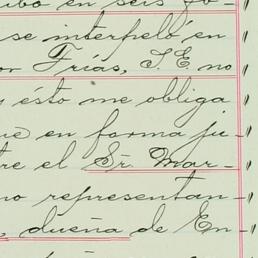 en seis
se interpeló en
Frías, S.E. no
ésto me obliga
en forma ju-
el Sr. Mar-
no representan-
dueña de En-